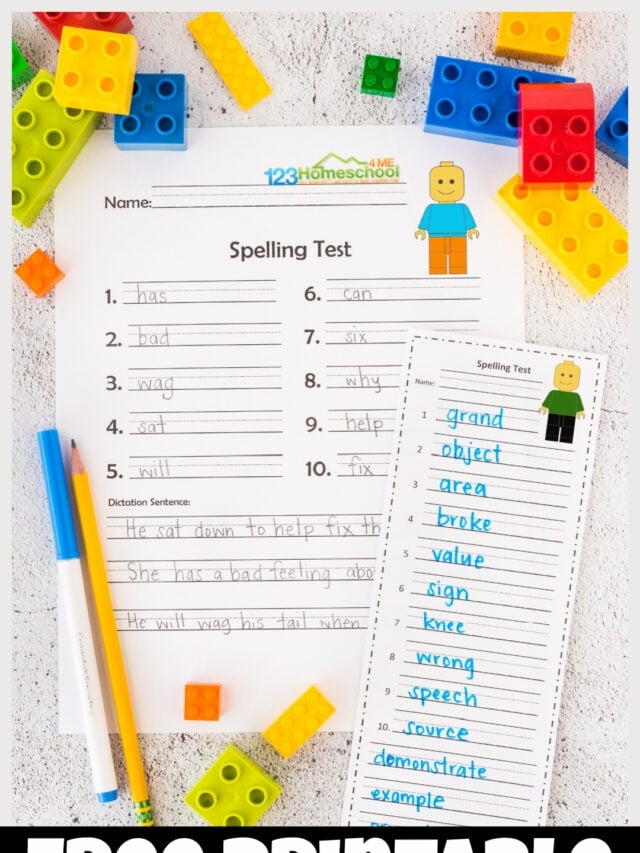 123 Homeschool 4 ME
Name:
Spelling Test
1. has
2. bad
3. wag
4. sat
5. will
6. can
7. six
8. why
9. help
10. fix
Dictation Sentence:
He sat down to help fix th
She has a bad feeling abo
He will wag his tail when
Spelling Test
Name:
1 grand
2 object
3 area
4 broke
5 value
6 sign
7 knee
8 wrong
9 speech
10. source
demonstrate
example
FREE PRINTABLE